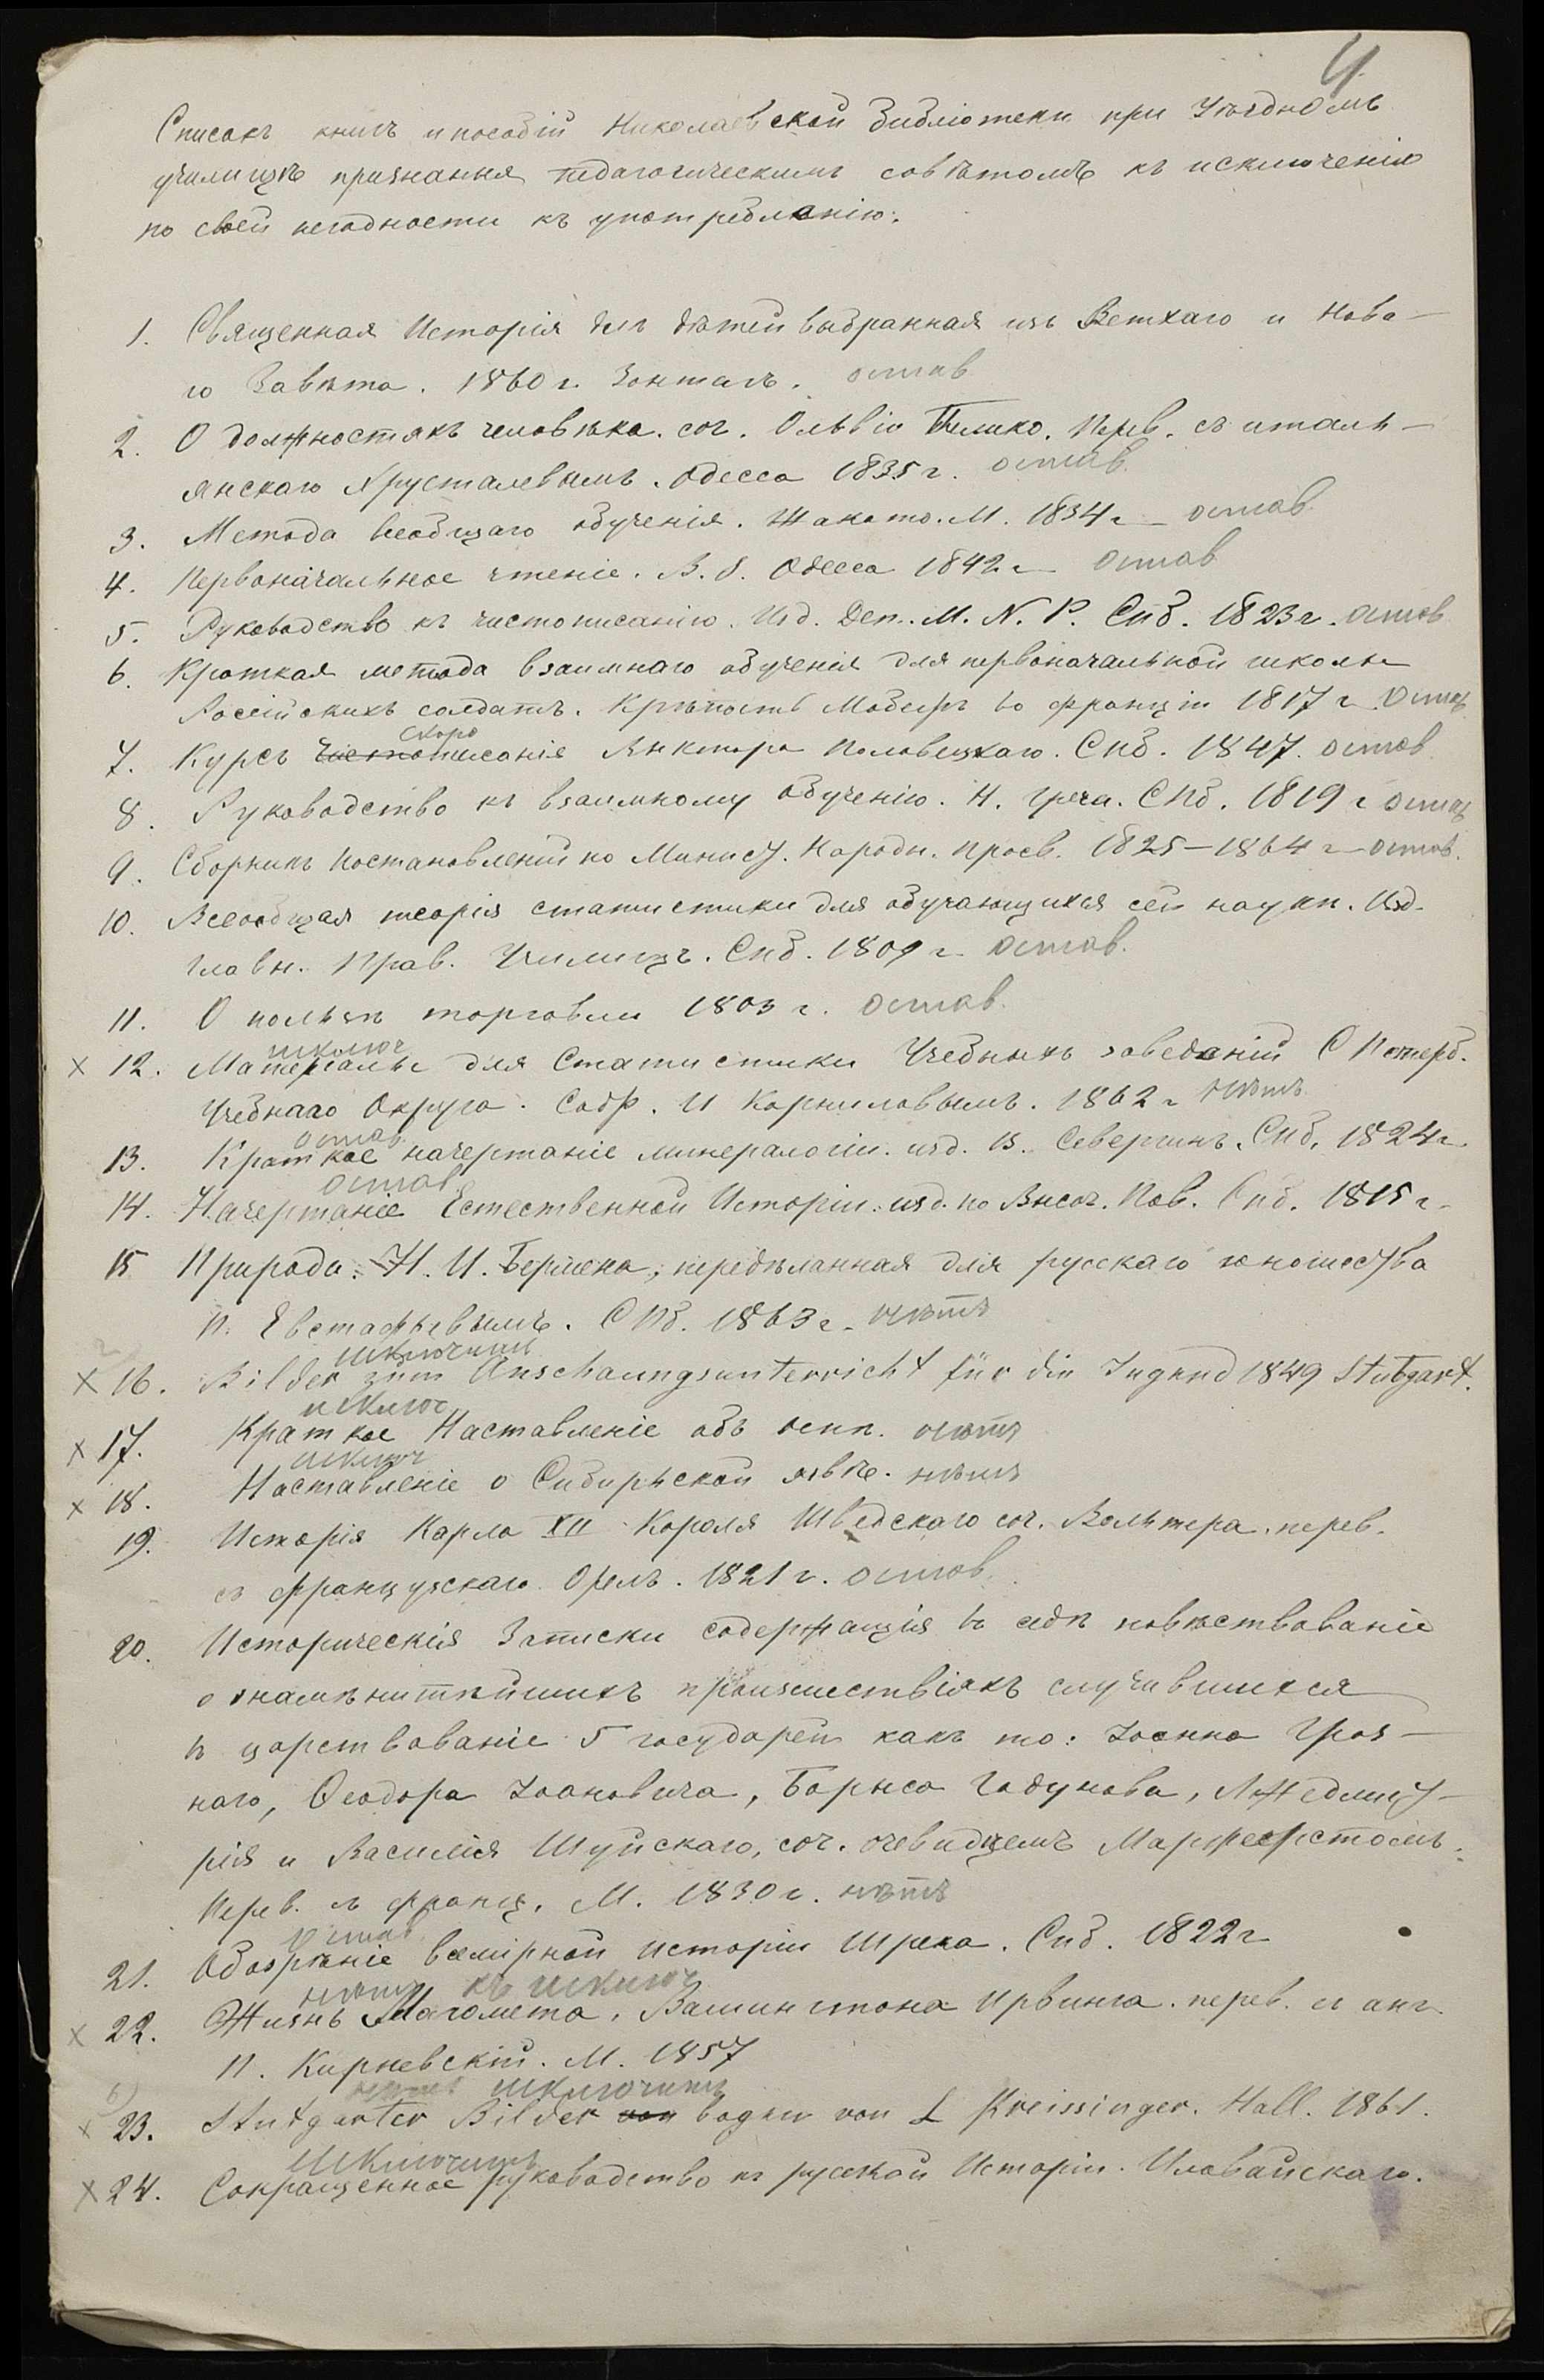 4.
Списокъ книгъ и пособій Николаевской библіотеки при Уѣздномъ
училищѣ признанныя педагогическимъ совѣтомъ къ исключенію
по своей негодности къ употребленію.
1. Священная Исторія для дѣтей выбранная изъ Ветхаго и Ново-
го Завѣта. 1860 г. Зонтагъ. остав
2. О должностяхъ человѣка. соч. Сильвіо Пелико. Перев. съ италь-
янскаго Хрусталевымъ. Одесса 1835 г. остав.
3. Метода всеобщаго обученія. Жакото. М. 1834 г. остав.
4. Первоначальное чтеніе. В. З. Одесса 1842 г. остав
5. Руководство къ чистописанію. Изд. Деп. М. Н. П. Спб. 1823 г. остав
6. Краткая метода взаимнаго обученія для первоначальной школы
Россійскихъ солдатъ. Крѣпость Мобежъ во франціи 1817 г. остав
скоро
7. Курсъ чистописанія Виктора Половецкаго. Спб. 1847. остав.
8. Руководство къ взаимному обученію. Н. Греча. СПб. 1819 г. остав
9. Сборникъ постановленій по Минист. Народн. Просв. 1825–1864 г. остав.
10. Всеобщая теорія статистики для обучающихся сей науки. Изд.
главн. Прав. Училищъ. Спб. 1809 г. остав.
11. О пользѣ торговли 1803 г. остав.
исключ
х 12. Матеріалы для Статистики Учебныхъ заведеній С Петерб.
Учебнаго Округа. Собр. И Корниловымъ. 1862 г. нѣтъ
остав.
13. Краткое начертаніе минералогіи. изд. В. Севергинъ. Спб. 1824 г.
остав
14. Начертаніе Естественной Исторіи. изд. по Высоч. Пов. Спб. 1815 г.
15 Природа. Н. И. Бермена, передѣланная для русскаго юношества
П. Евстафьевымъ. СПб. 1863 г. нѣтъ
исключить
х 16. Bilder zum Anschaungsunterricht für die Jugend 1849 Stutgart.
исключ
х 17. Краткое Наставленіе объ оспѣ. нѣтъ
исключ
х 18. Наставленіе о Сибирьской язвѣ. нѣтъ
19. Исторія Карла XII Короля Шведскаго соч. Вольтера. перев.
съ французскаго. Орелъ. 1821 г. остав.
20. Историческія Записки содержащія въ себѣ повѣствованіе
о знаменитѣйшихъ произшествіяхъ случившихся
въ царствованіе 5 государей какъ то: Іоанна Гроз-
наго, Ѳеодора Іоановича, Бориса Годунова, Лжедмит-
рія и Василія Шуйскаго, соч. очевидцемъ Маржеретомъ.
Перев. съ франц. М. 1830 г. нѣтъ
остав
21. Обозрѣніе всемірной исторіи Шрека. Спб. 1822 г
нѣтъ къ исключ
х 22. Жизнь Магомета, Вашингтона Ирвинга. перев. съ анг.
П. Кирѣевскій. М. 1857
нѣтъ исключить
х 23. Stutgarter Bilder von L Kreissinger. Hall. 1861.
исключить
х 24. Сокращенное руководство къ русской Исторіи. Иловайскаго.